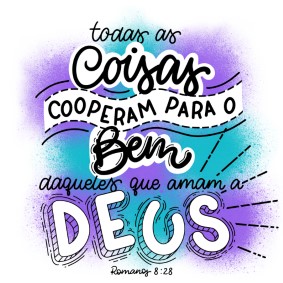 todas as
Coisas
COOPERAM PARA O
Bem
daqueles que amam a
DEUS
Romanos 8:28